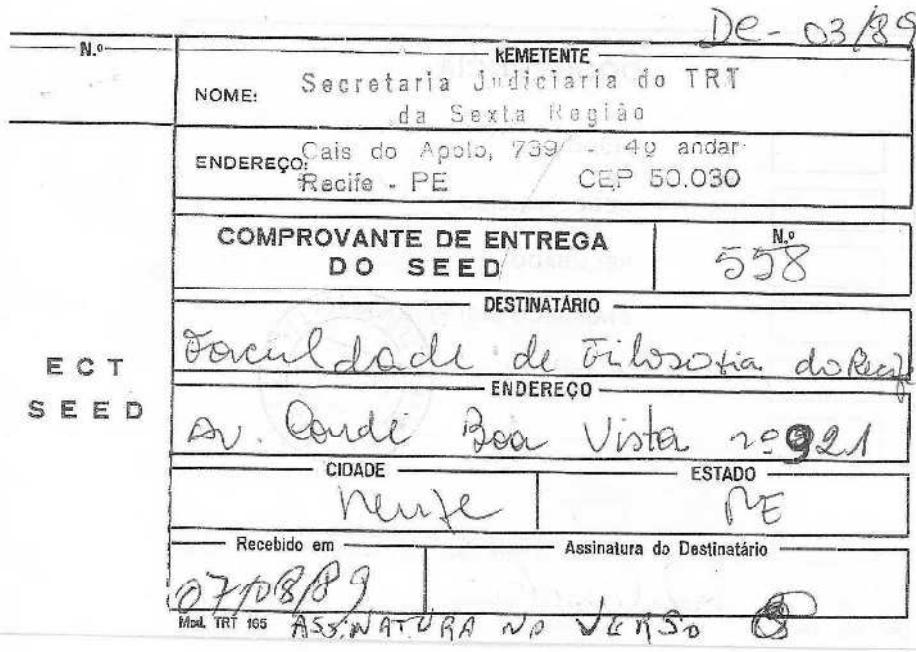 DC- 03/89
N.º
REMETENTE
NOME: Secretaria Judiciaria do TRT
da Sexta Região
ENDEREÇO: Cais do Apolo, 739 - 4º andar
Recife - PE CEP 50.030
COMPROVANTE DE ENTREGA
DO SEED
N.º
558
DESTINATÁRIO
Faculdade de Filosofia do Recife
ECT
SEED
ENDEREÇO
Av. Conde Boa Vista nº 921
CIDADE
Recife
ESTADO
PE
Recebido em
07/08/89
Assinatura do Destinatário
Mod. TRT 165
ASSINATURA NO VERSO